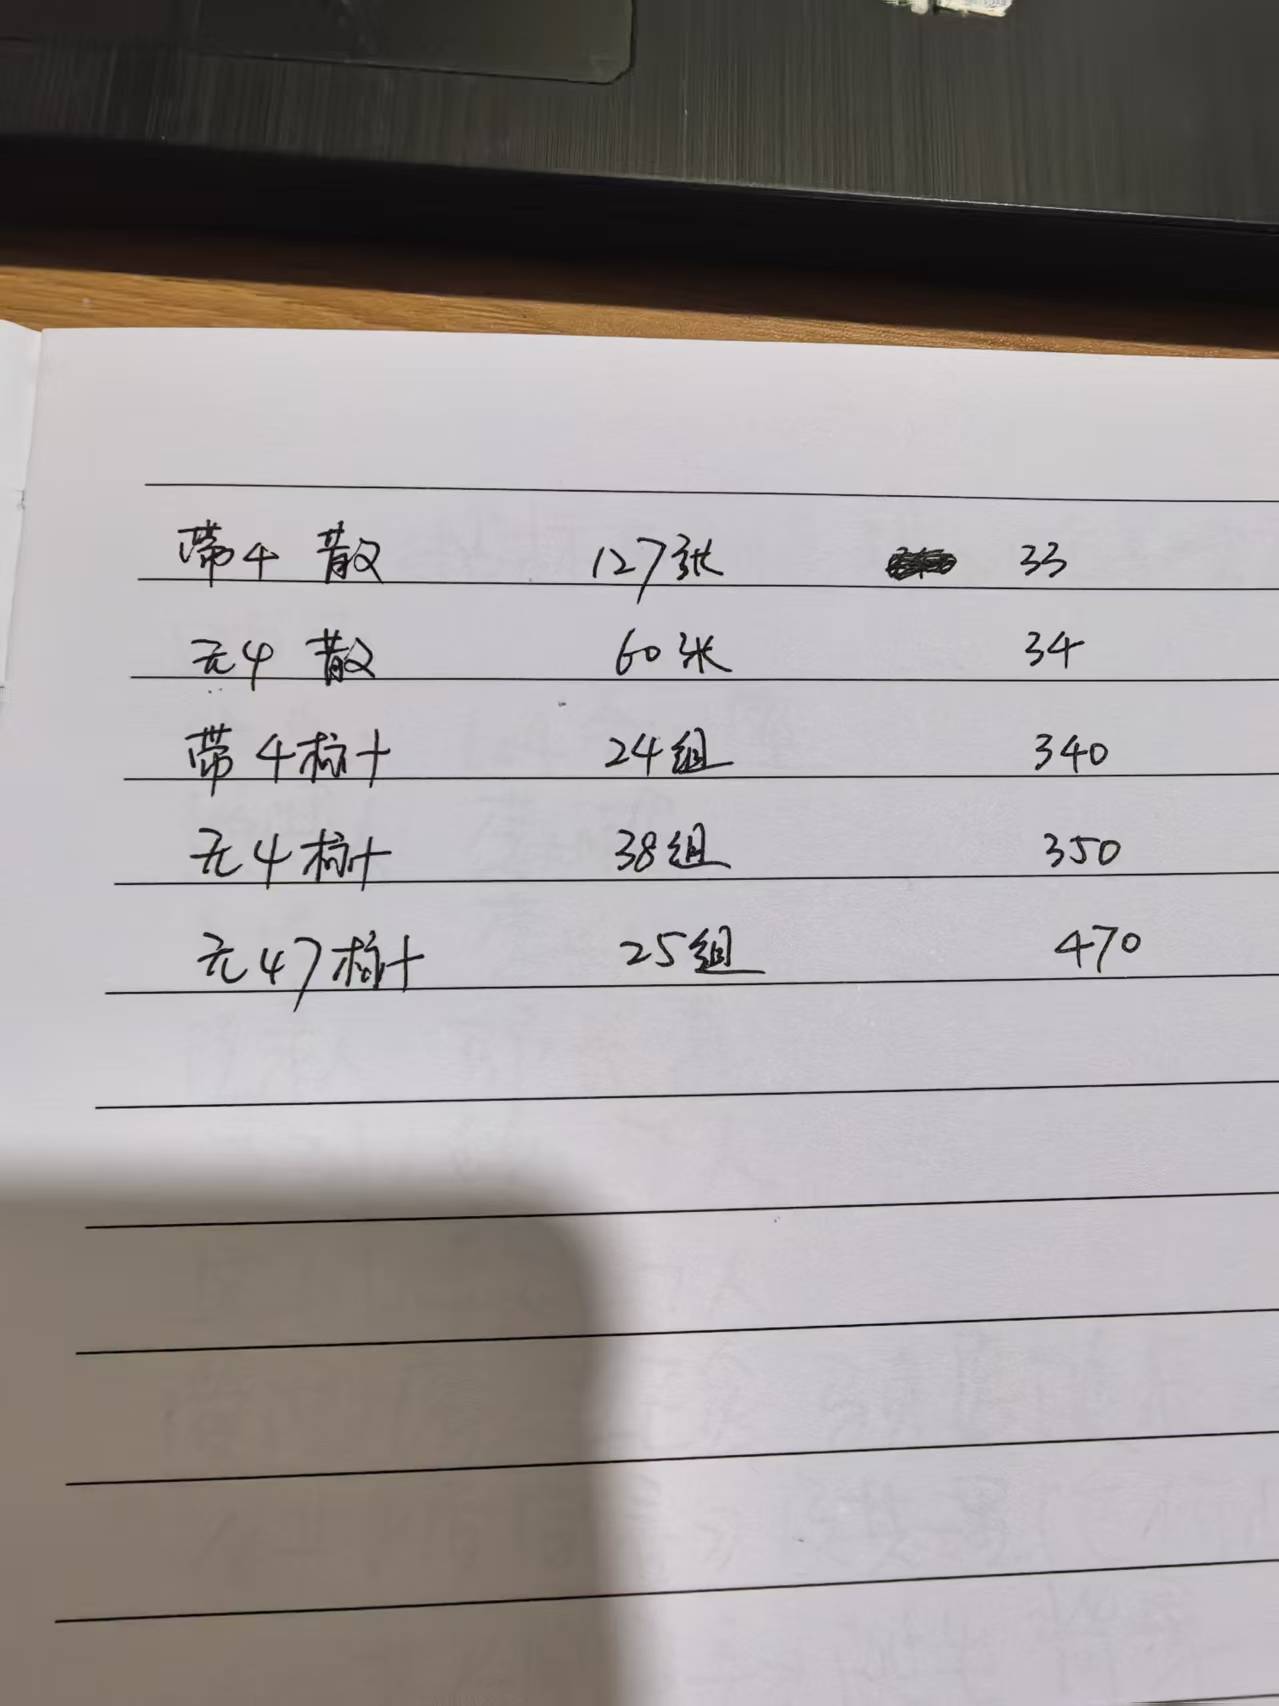 带4 散 127张 33
无4 散 60张 34
带4标十 24组 340
无4标十 38组 350
无47标十 25组 470